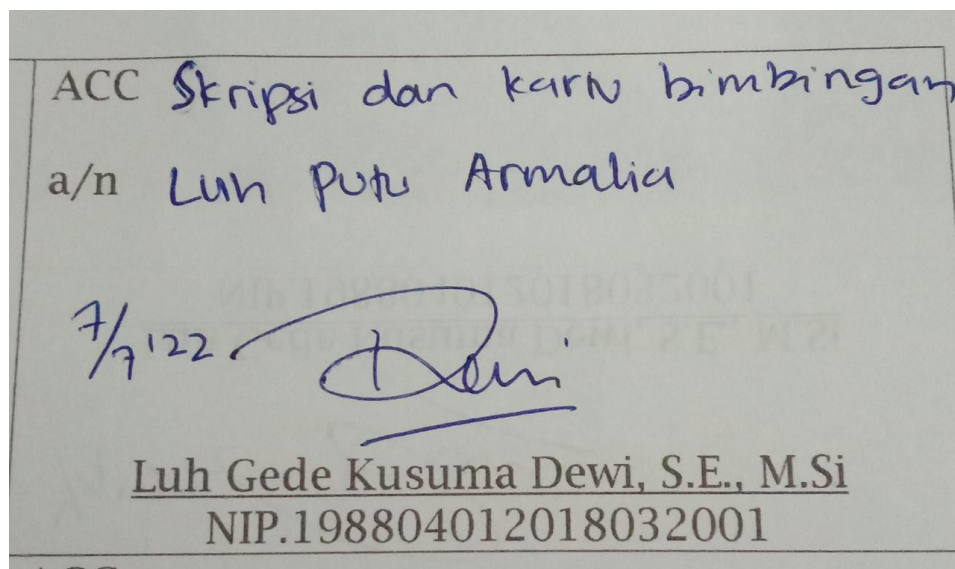 ACC Skripsi dan kartu bimbingan
a/n Luh Putu Armalia
7/7 '22 Dewi
Luh Gede Kusuma Dewi, S.E., M.Si
NIP.198804012018032001